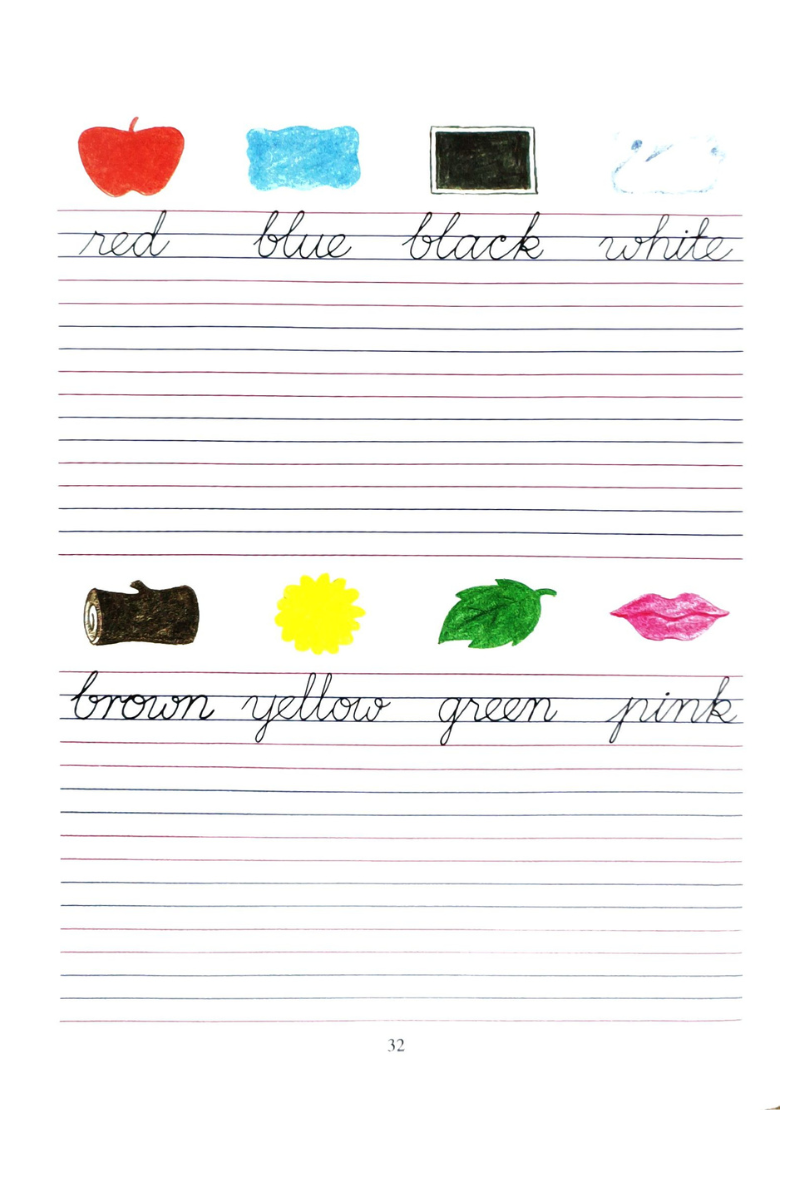 red blue black white
brown yellow green pink
32